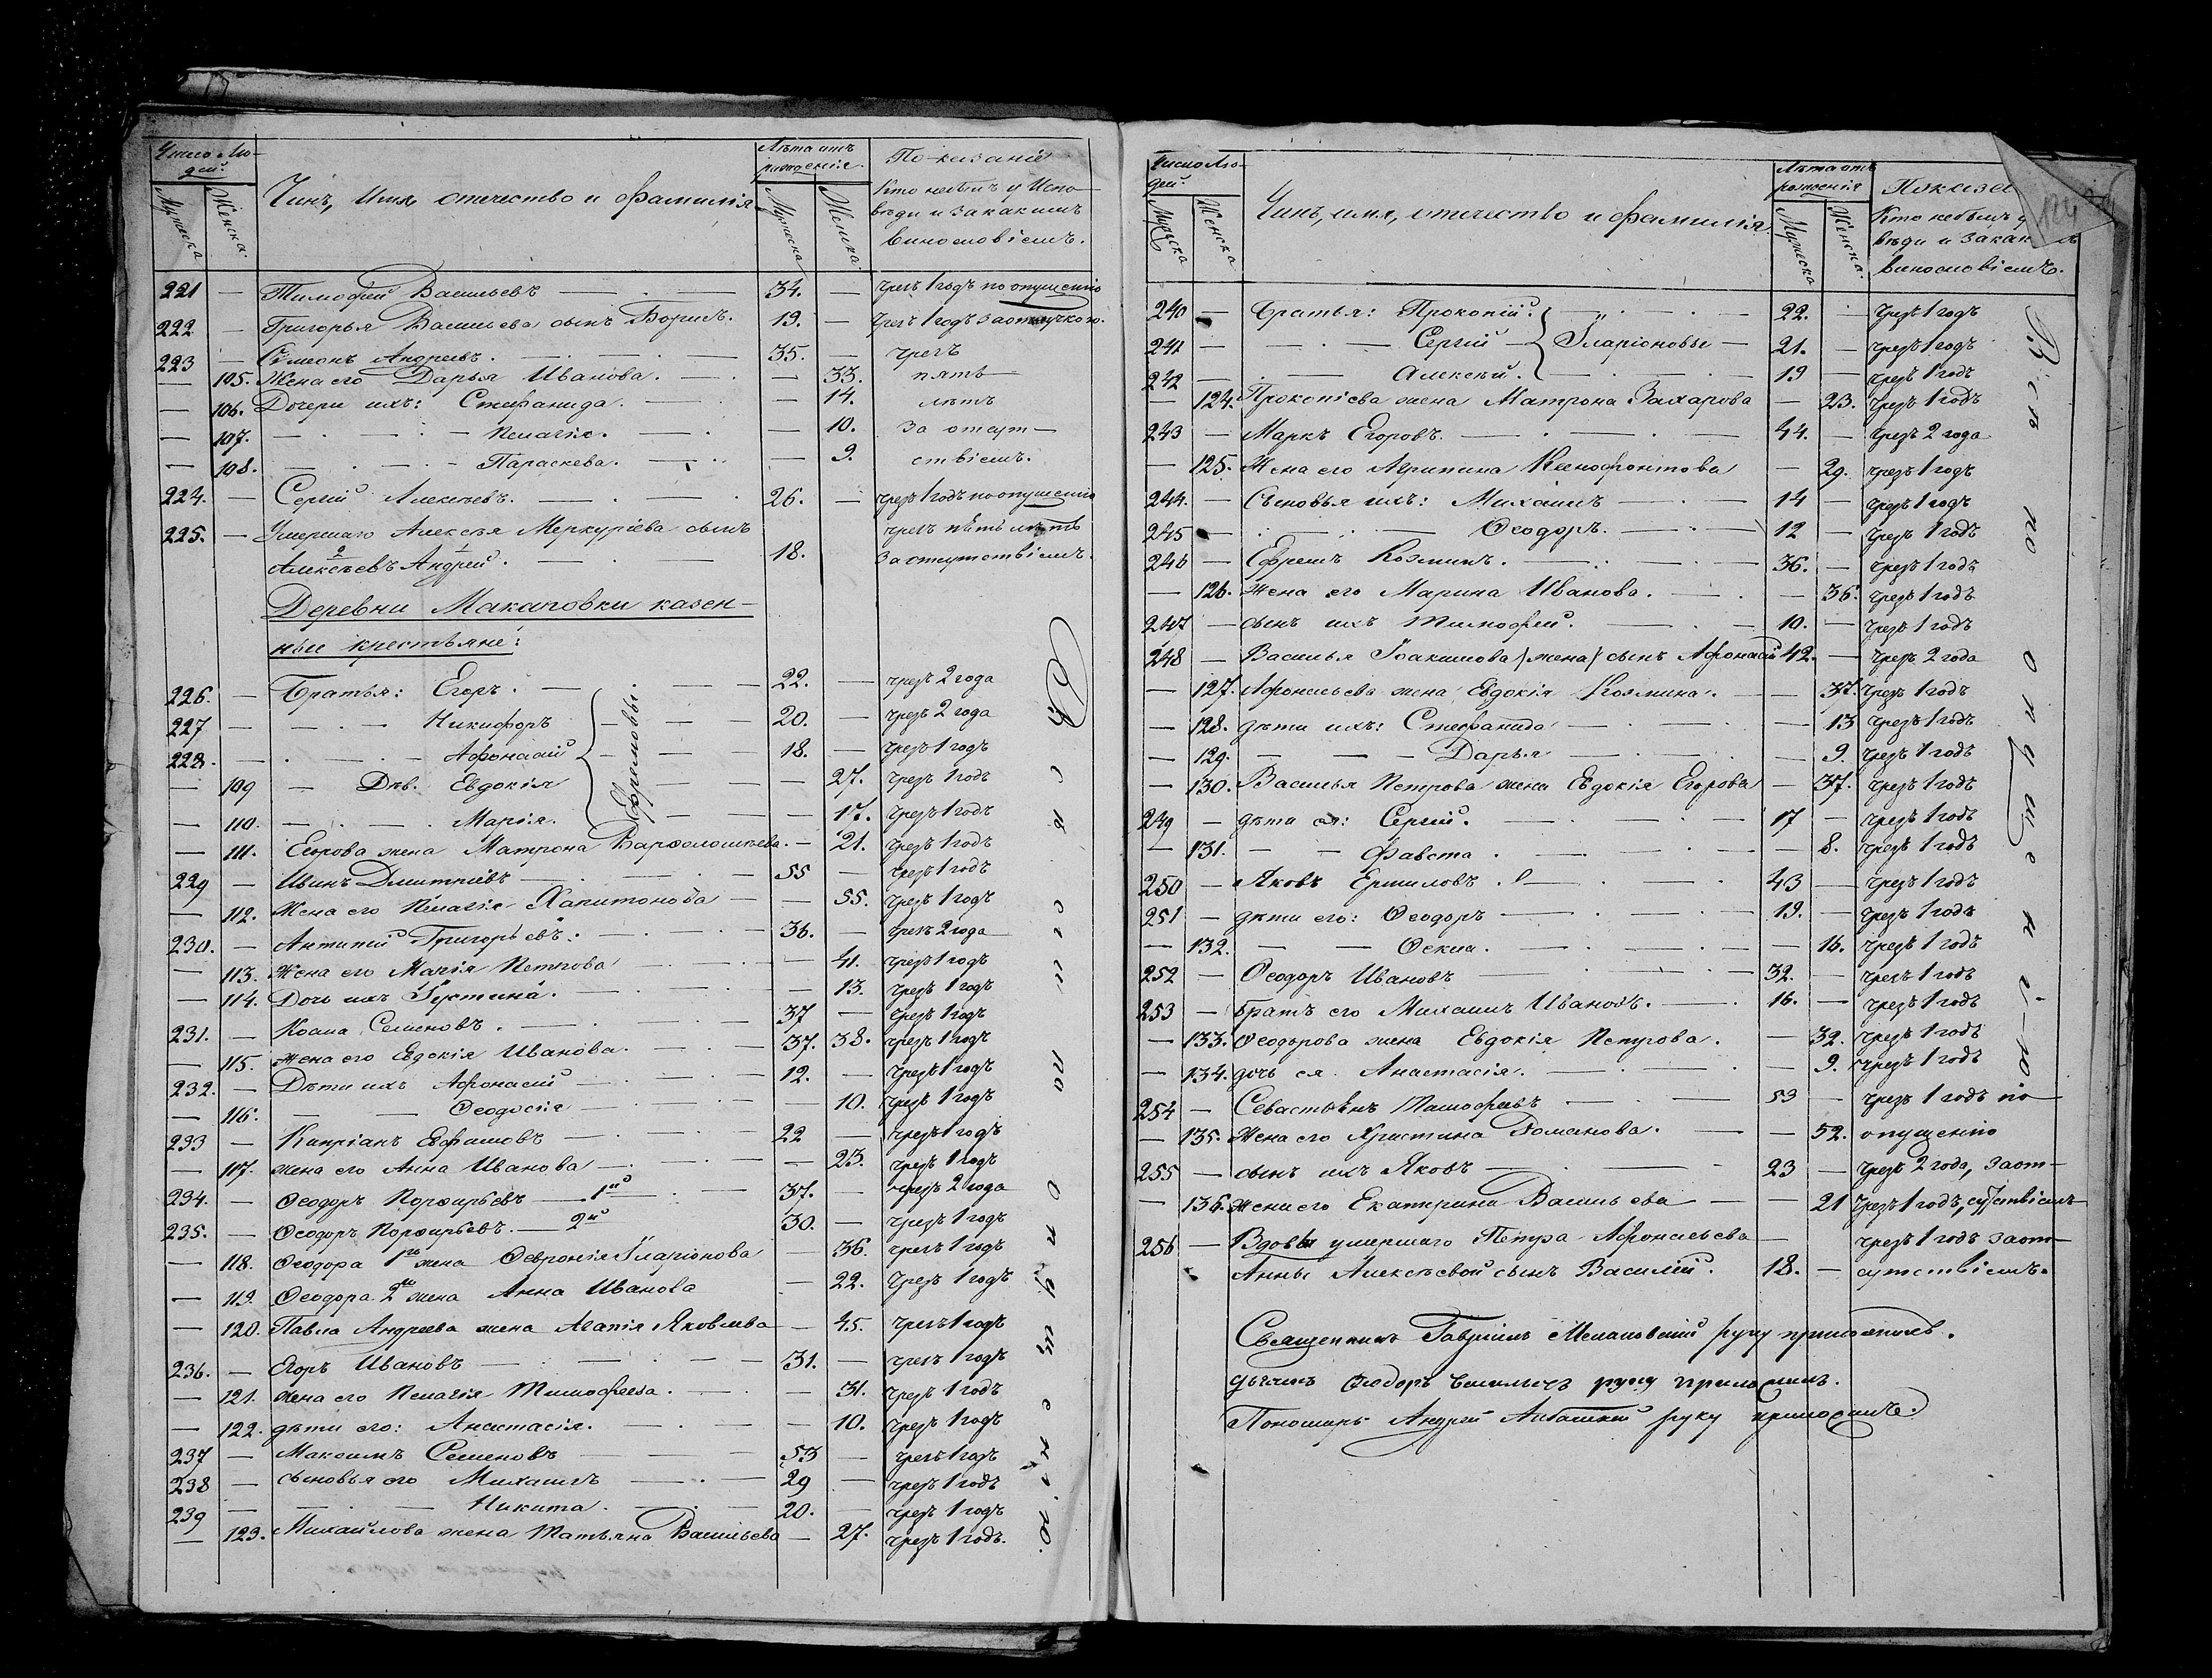 Число Лю-
дей.
Мужеска
Женска.
Чинъ, Имя, отечество и фамилія
Лѣта отъ
рожденія.
Мужеска
Женска.
Показаніе
Кто небылъ у Испо-
вѣди и за какимъ
винословіемъ.
221 — Тимофей Васильевъ — 34. — чрезъ 1 годъ по опущенію
222 — Григорья Васильева сынъ Борисъ. 19. — чрезъ 1 годъ за отлучкою.
223 — Симеонъ Андреевъ. — 35. — чрезъ
— 105. Жена его Дарья Иванова. — — 33. пять
— 106. Дочери ихъ: Стефанида. — — 14. лѣтъ
— 107. — Пелагія. — — 10. за отсут-
— 108. — Параскева. — — 9. ствіемъ.
224. — Сергій Алексѣевъ. — 26. — чрезъ 1 годъ по опущенію
225. — Умершаго Алексѣя Меркуріева сынъ чрезъ пѣть лѣтъ
Алексѣевъ Андрей. — 18. за отсутствіемъ.
Деревни Макаповки казен-
ные крестьяне:
226. — Братья: Егоръ. — 22. — чрезъ 2 года
227 — Никифоръ — 20. — чрезъ 2 года
228. — Афонасій — 18. — чрезъ 1 годъ
Ефремовы
— 109 — Дѣв. Евдокія — — 27. чрезъ 1 годъ
— 110. — Марія. — — 17. чрезъ 1 годъ
— 111. Егорова жена Матрона Варфоломѣева. — 21. чрезъ 1 годъ
229 — Иванъ Дмитріевъ — 55 — чрезъ 1 годъ
— 112. Жена его Пелагія Харитонова — — 55. чрезъ 1 годъ
230. — Антипій Григорьевъ. — 36. — чрезъ 2 года
— 113. Жена его Марія Петрова — 41. чрезъ 1 годъ
— 114. Дочь ихъ Іустина. — — 13. чрезъ 1 годъ
231. — Косма Семеновъ. — 37 — чрезъ 1 годъ
— 115. жена его Евдокія Иванова. — 37. 38. чрезъ 1 годъ
232. — Дѣти ихъ Афонасій — 12. — чрезъ 1 годъ
— 116. — Ѳеодосія — — 10. чрезъ 1 годъ
233 — Кипріанъ Ефимовъ — 22 — чрезъ 1 годъ
— 117. жена его Анна Иванова — — 23. чрезъ 1 годъ
234. — Ѳеодоръ Порфирьевъ — 1й — 37. — чрезъ 2 года
235. — Ѳеодоръ Порфирьевъ. — 2й 30. — чрезъ 1 годъ
— 118. Ѳеодора 1го жена Ѳевронія Иларіонова — 36. чрезъ 1 годъ
— 119. Ѳеодора 2го жена Анна Иванова — 22. чрезъ 1 годъ
— 120. Павла Андреева жена Агапія Яковлева — 45. чрезъ 1 годъ
236. — Егоръ Ивановъ — 31. — чрезъ 1 годъ
— 121. жена его Пелагія Тимофеева. — — 31. чрезъ 1 годъ
— 122. дѣти его: Анастасія. — — 10. чрезъ 1 годъ
237 — Максимъ Семеновъ — 53 — чрезъ 1 годъ
238 — сыновья его Михаилъ — 29 — чрезъ 1 годъ
239 — Никита. — 20. — чрезъ 1 годъ
— 123. Михайлова жена Татьяна Васильева — 27. чрезъ 1 годъ.
Всѣ сіи по опущенію.
Число Лю-
дей.
Мужеска
Женска
Чинъ, имя, отечество и фамилія
Лѣта отъ
рожденія
Мужеска
Женска.
Показа
Кто небылъ у
вѣди и за как
винословіемъ.
240 Братья: Прокопій. — 22. — чрезъ 1 годъ
241 — Сергій — Иларіоновы — 21. — чрезъ 1 годъ
242 — Алексѣй. — 19 — чрезъ 1 годъ
— 124. Прокопіева жена Матрона Захарова — 23. чрезъ 1 годъ
243 — Маркъ Егоровъ. — 44. — чрезъ 2 года
— 125. Жена его Агрипина Ксенофонтова — 29. чрезъ 1 годъ
244. — Сыновья ихъ: Михаилъ — 14 — чрезъ 1 годъ
245 — Ѳеодоръ. — 12 — чрезъ 1 годъ
246 — Ефремъ Козминъ. — 36. — чрезъ 1 годъ
— 126. жена его Марина Иванова. — — 36. чрезъ 1 годъ
247 — сынъ ихъ Тимофей. — 10. — чрезъ 1 годъ
248 — Василья Іоакимова (жена) сынъ Афонасій 42. — чрезъ 2 года
— 127. Афонасьева жена Евдокія Козмина. — 37. чрезъ 1 годъ
— 128. дѣти ихъ: Стефанида — — 13 чрезъ 1 годъ
— 129. — Дарья — — 9. чрезъ 1 годъ
— 130. Василья Петрова жена Евдокія Егорова — 37. чрезъ 1 годъ
249 — дѣти ея: Сергій. — 17 — чрезъ 1 годъ
— 131. — Фавста. — — 8. чрезъ 1 годъ
250 — Яковъ Ермиловъ. — 43 — чрезъ 1 годъ
251 — дѣти его: Ѳеодоръ — 19. — чрезъ 1 годъ
— 132. — Ѳекла. — — 16. чрезъ 1 годъ
252 — Ѳеодоръ Ивановъ — 32. — чрезъ 1 годъ
253 — Братъ его Михаилъ Ивановъ. — 16. — чрезъ 1 годъ
— 133. Ѳеодорова жена Евдокія Петрова. — 32. чрезъ 1 годъ
— 134. дочь ея Анастасія. — — 9. чрезъ 1 годъ
254 — Севастьянъ Тимофеевъ — 53 — чрезъ 1 годъ по
— 135. Жена его Христина Романова. — — 52. опущенію
255 — сынъ ихъ Яковъ — 23 — чрезъ 2 года, за от-
— 136. жена его Екатерина Васильева — — 21 чрезъ 1 годъ, сутствіемъ
256 — Вдовы умершаго Петра Афонасьева — чрезъ 1 годъ за от-
Анны Алексѣевой сынъ Василій. 18. — сутствіемъ.
Всѣ по опущенію
Священникъ Гавріилъ руку приложилъ.
дьячекъ Ѳеодоръ руку приложилъ.
Пономарь Андрей руку приложилъ.